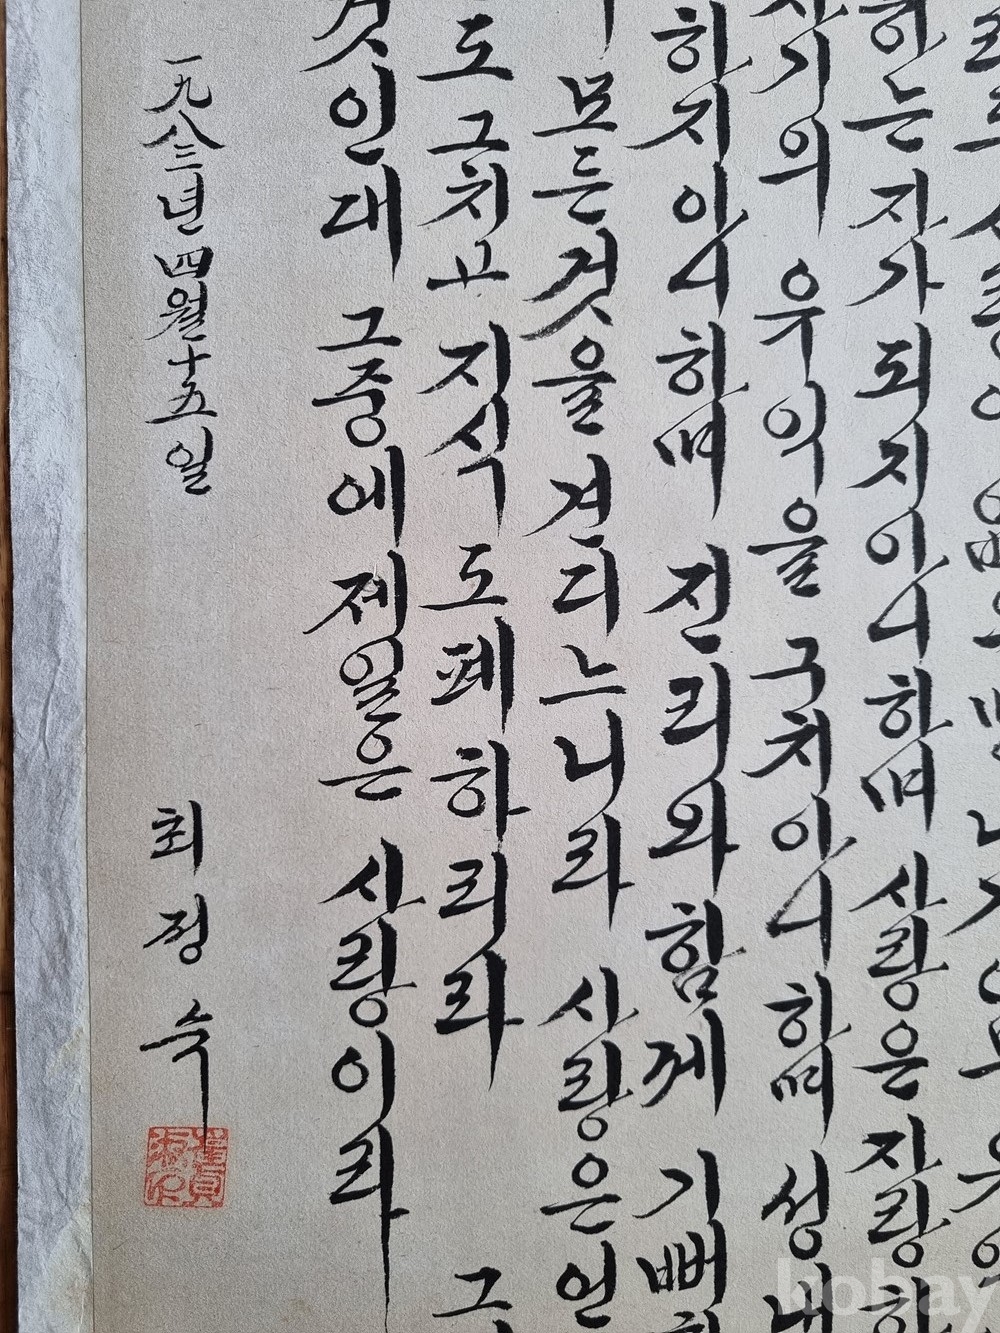 하는 자가 되지 아니하며 사랑은 자랑하
자기의 유익을 구치 아니하며 성내
하지 아니하며 진리와 함께 기뻐하
모든것을 견디느니라 사랑은 언
도 그치고 지식도 폐하리라 그
것인대 그중에 제일은 사랑이라
一九八三년 四월 十五일 최정숙
kobay